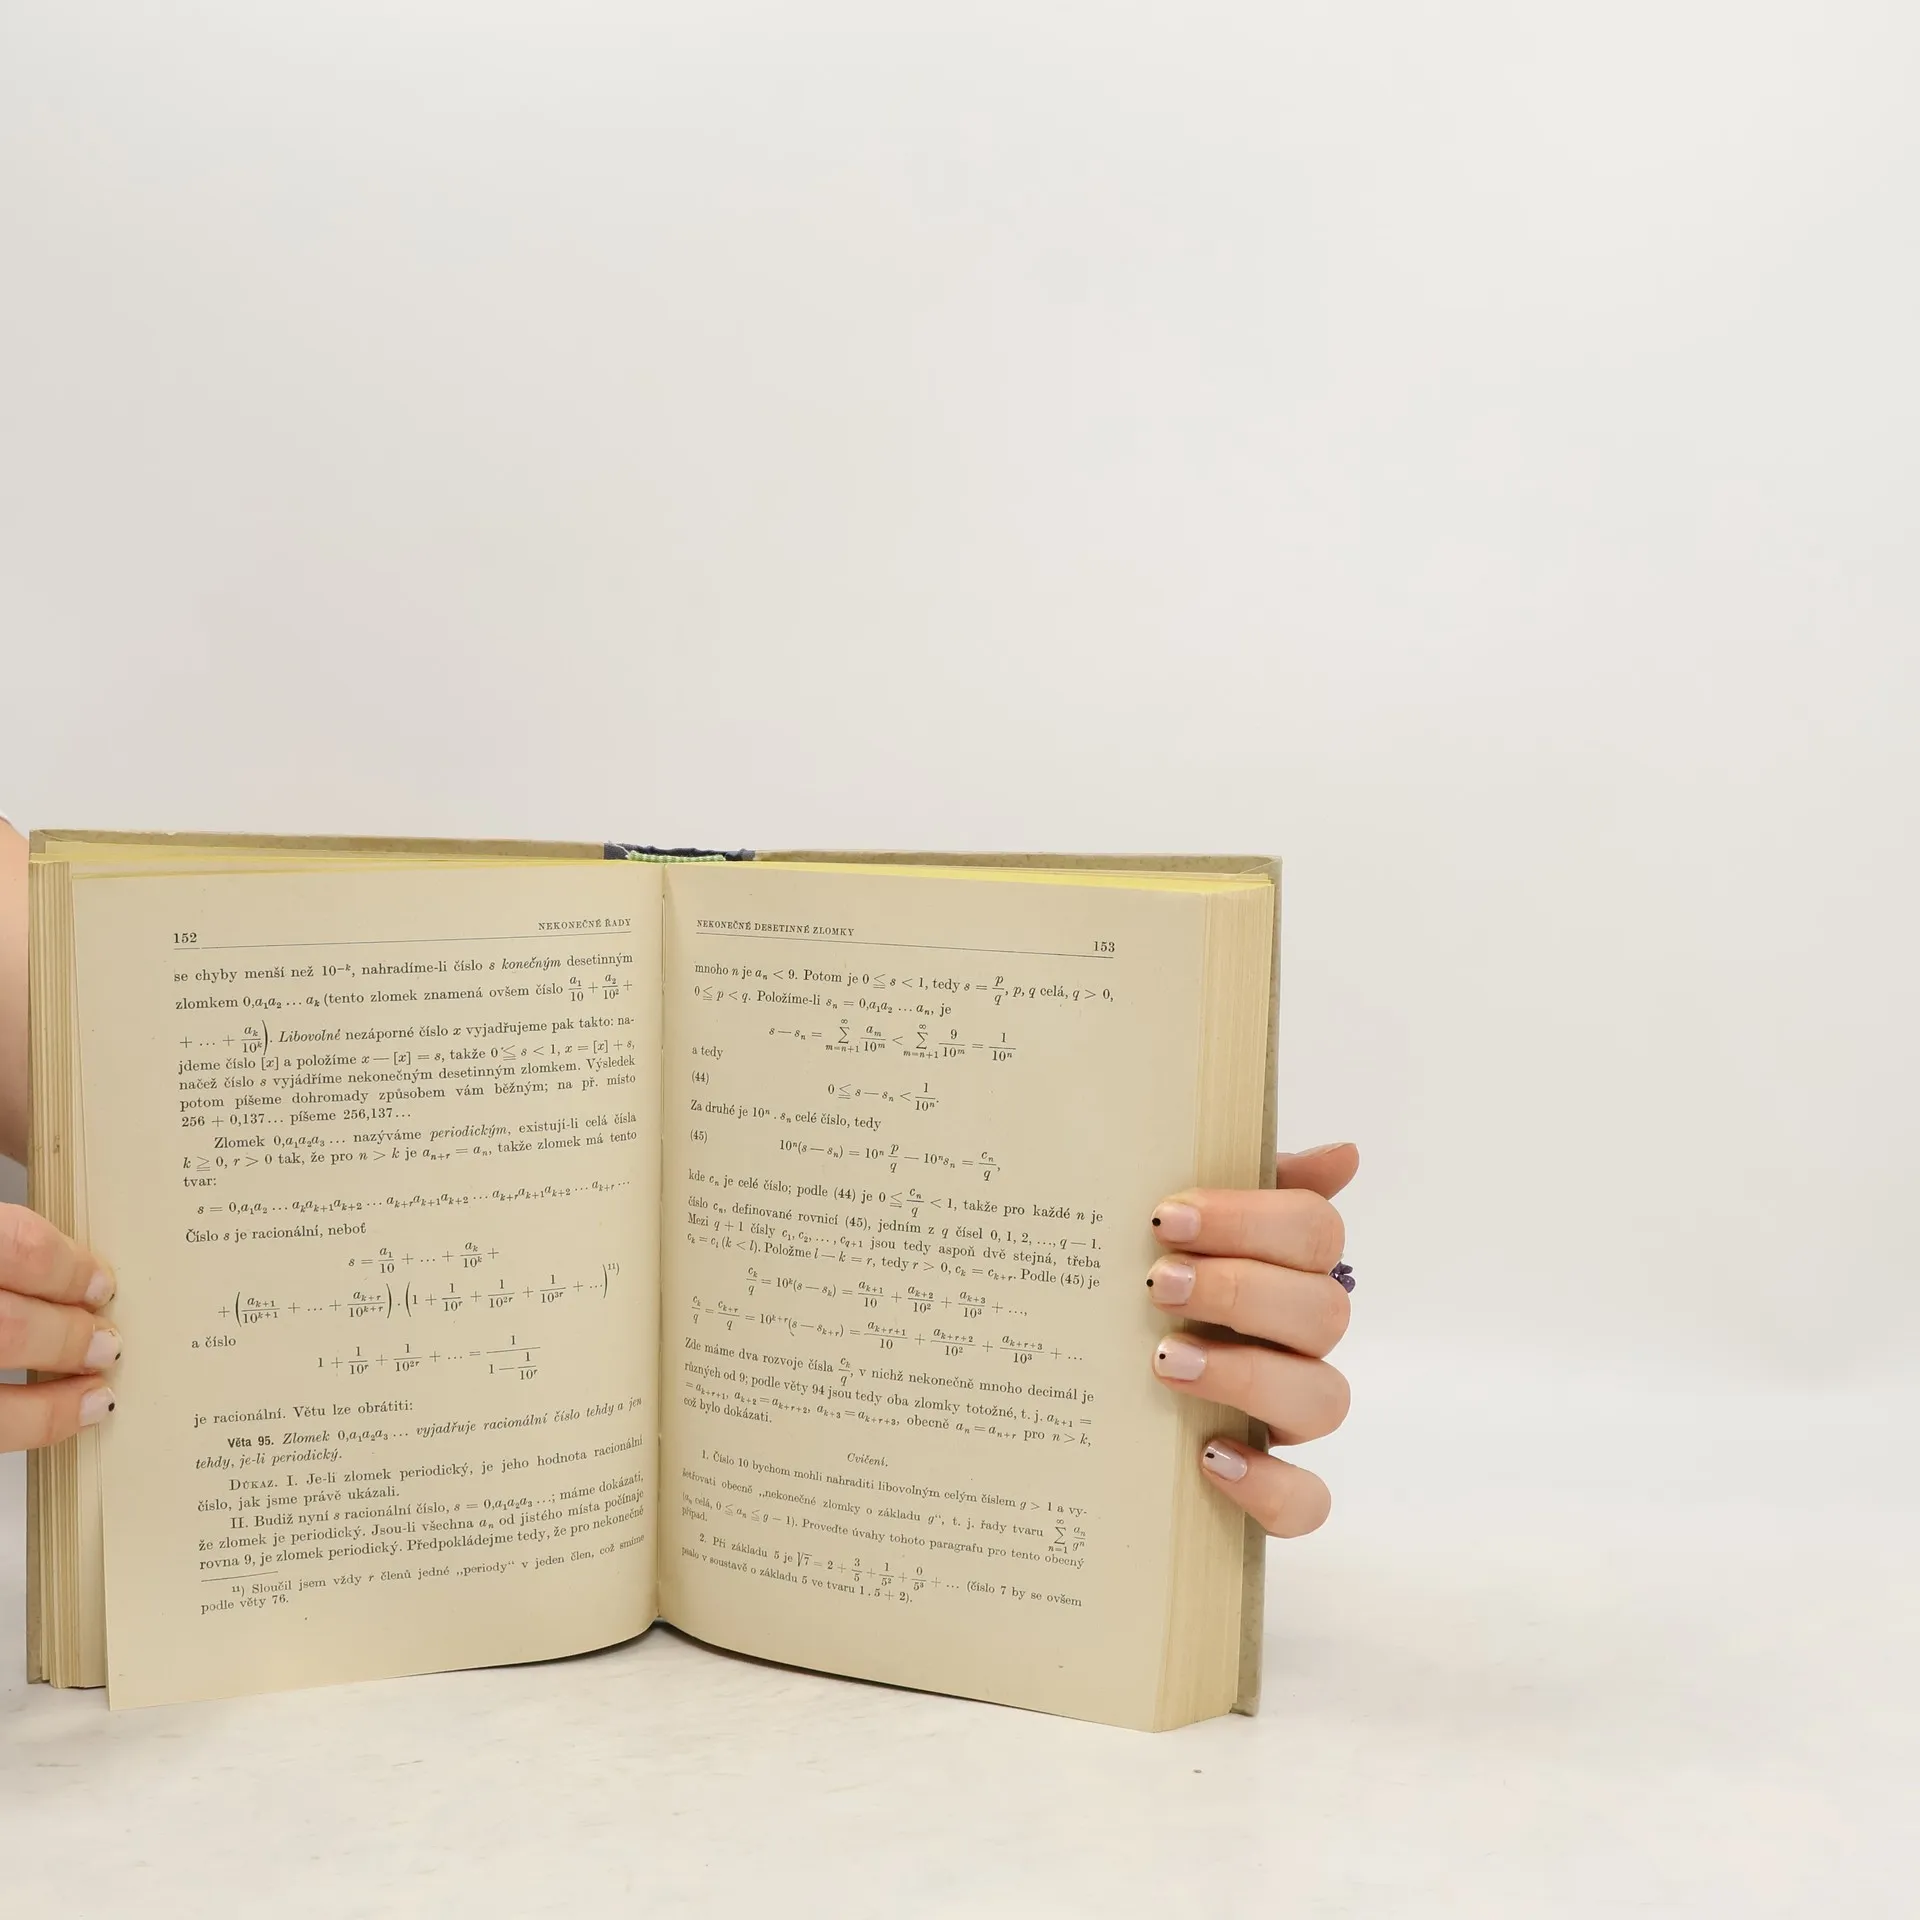 152 NEKONEČNÉ ŘADY
se chyby menší než 10⁻ᵏ, nahradíme-li číslo s konečným desetinným
zlomkem 0,a₁a₂ … aₖ (tento zlomek znamená ovšem číslo a₁/10 + a₂/10² +
+ … + aₖ/10ᵏ). Libovolné nezáporné číslo x vyjadřujeme pak takto: na-
jdeme číslo [x] a položíme x — [x] = s, takže 0 ≦ s < 1, x = [x] + s,
načež číslo s vyjádříme nekonečným desetinným zlomkem. Výsledek
potom píšeme dohromady způsobem vám běžným; na př. místo
256 + 0,137… píšeme 256,137…
Zlomek 0,a₁a₂a₃ … nazýváme periodickým, existují-li celá čísla
k ≧ 0, r > 0 tak, že pro n > k je aₙ₊ᵣ = aₙ, takže zlomek má tento
tvar:
s = 0,a₁a₂ … aₖaₖ₊₁aₖ₊₂ … aₖ₊ᵣaₖ₊₁aₖ₊₂ … aₖ₊ᵣaₖ₊₁aₖ₊₂ … aₖ₊ᵣ …
Číslo s je racionální, neboť
s = a₁/10 + … + aₖ/10ᵏ +
+ (aₖ₊₁/10ᵏ⁺¹ + … + aₖ₊ᵣ/10ᵏ⁺ʳ) . (1 + 1/10ʳ + 1/10²ʳ + 1/10³ʳ + …)¹¹)
a číslo
1 + 1/10ʳ + 1/10²ʳ + … = 1/(1 — 1/10ʳ)
je racionální. Větu lze obrátiti:
Věta 95. Zlomek 0,a₁a₂a₃ … vyjadřuje racionální číslo tehdy a jen
tehdy, je-li periodický.
DŮKAZ. I. Je-li zlomek periodický, je jeho hodnota racionální
číslo, jak jsme právě ukázali.
II. Budiž nyní s racionální číslo, s = 0,a₁a₂a₃ …; máme dokázati,
že zlomek je periodický. Jsou-li všechna aₙ od jistého místa počínaje
rovna 9, je zlomek periodický. Předpokládejme tedy, že pro nekonečně
¹¹) Sloučil jsem vždy r členů jedné „periody“ v jeden člen, což smíme
podle věty 76.
NEKONEČNÉ DESETINNÉ ZLOMKY 153
mnoho n je aₙ < 9. Potom je 0 ≦ s < 1, tedy s = p/q, p, q celá, q > 0,
0 ≦ p < q. Položíme-li sₙ = 0,a₁a₂ … aₙ, je
s — sₙ = ∞∑m=n+1 aₘ/10ᵐ < ∞∑m=n+1 9/10ᵐ = 1/10ⁿ
a tedy
(44) 0 ≦ s — sₙ < 1/10ⁿ.
Za druhé je 10ⁿ . sₙ celé číslo, tedy
(45) 10ⁿ(s — sₙ) = 10ⁿ p/q — 10ⁿsₙ = cₙ/q,
kde cₙ je celé číslo; podle (44) je 0 ≦ cₙ/q < 1, takže pro každé n je
číslo cₙ, definované rovnicí (45), jedním z q čísel 0, 1, 2, …, q — 1.
Mezi q + 1 čísly c₁, c₂, …, c_{q+1} jsou tedy aspoň dvě stejná, třeba
cₖ = cₗ (k < l). Položme l — k = r, tedy r > 0, cₖ = cₖ₊ᵣ. Podle (45) je
cₖ/q = 10ᵏ(s — sₖ) = aₖ₊₁/10 + aₖ₊₂/10² + aₖ₊₃/10³ + …,
cₖ/q = cₖ₊ᵣ/q = 10ᵏ⁺ʳ(s — sₖ₊ᵣ) = aₖ₊ᵣ₊₁/10 + aₖ₊ᵣ₊₂/10² + aₖ₊ᵣ₊₃/10³ + …
Zde máme dva rozvoje čísla cₖ/q, v nichž nekonečně mnoho decimál je
různých od 9; podle věty 94 jsou tedy oba zlomky totožné, t. j. aₖ₊₁ =
= aₖ₊ᵣ₊₁, aₖ₊₂ = aₖ₊ᵣ₊₂, aₖ₊₃ = aₖ₊ᵣ₊₃, obecně aₙ = aₙ₊ᵣ pro n > k,
což bylo dokázati.
Cvičení.
1. Číslo 10 bychom mohli nahraditi libovolným celým číslem g > 1 a vy-
šetřovati obecně „nekonečné zlomky o základu g“, t. j. řady tvaru ∞∑n=1 aₙ/gⁿ
(aₙ celá, 0 ≦ aₙ ≦ g — 1). Proveďte úvahy tohoto paragrafu pro tento obecný
případ.
2. Při základu 5 je √7 = 2 + 3/5 + 1/5² + 0/5³ + … (číslo 7 by se ovšem
psalo v soustavě o základu 5 ve tvaru 1 . 5 + 2).